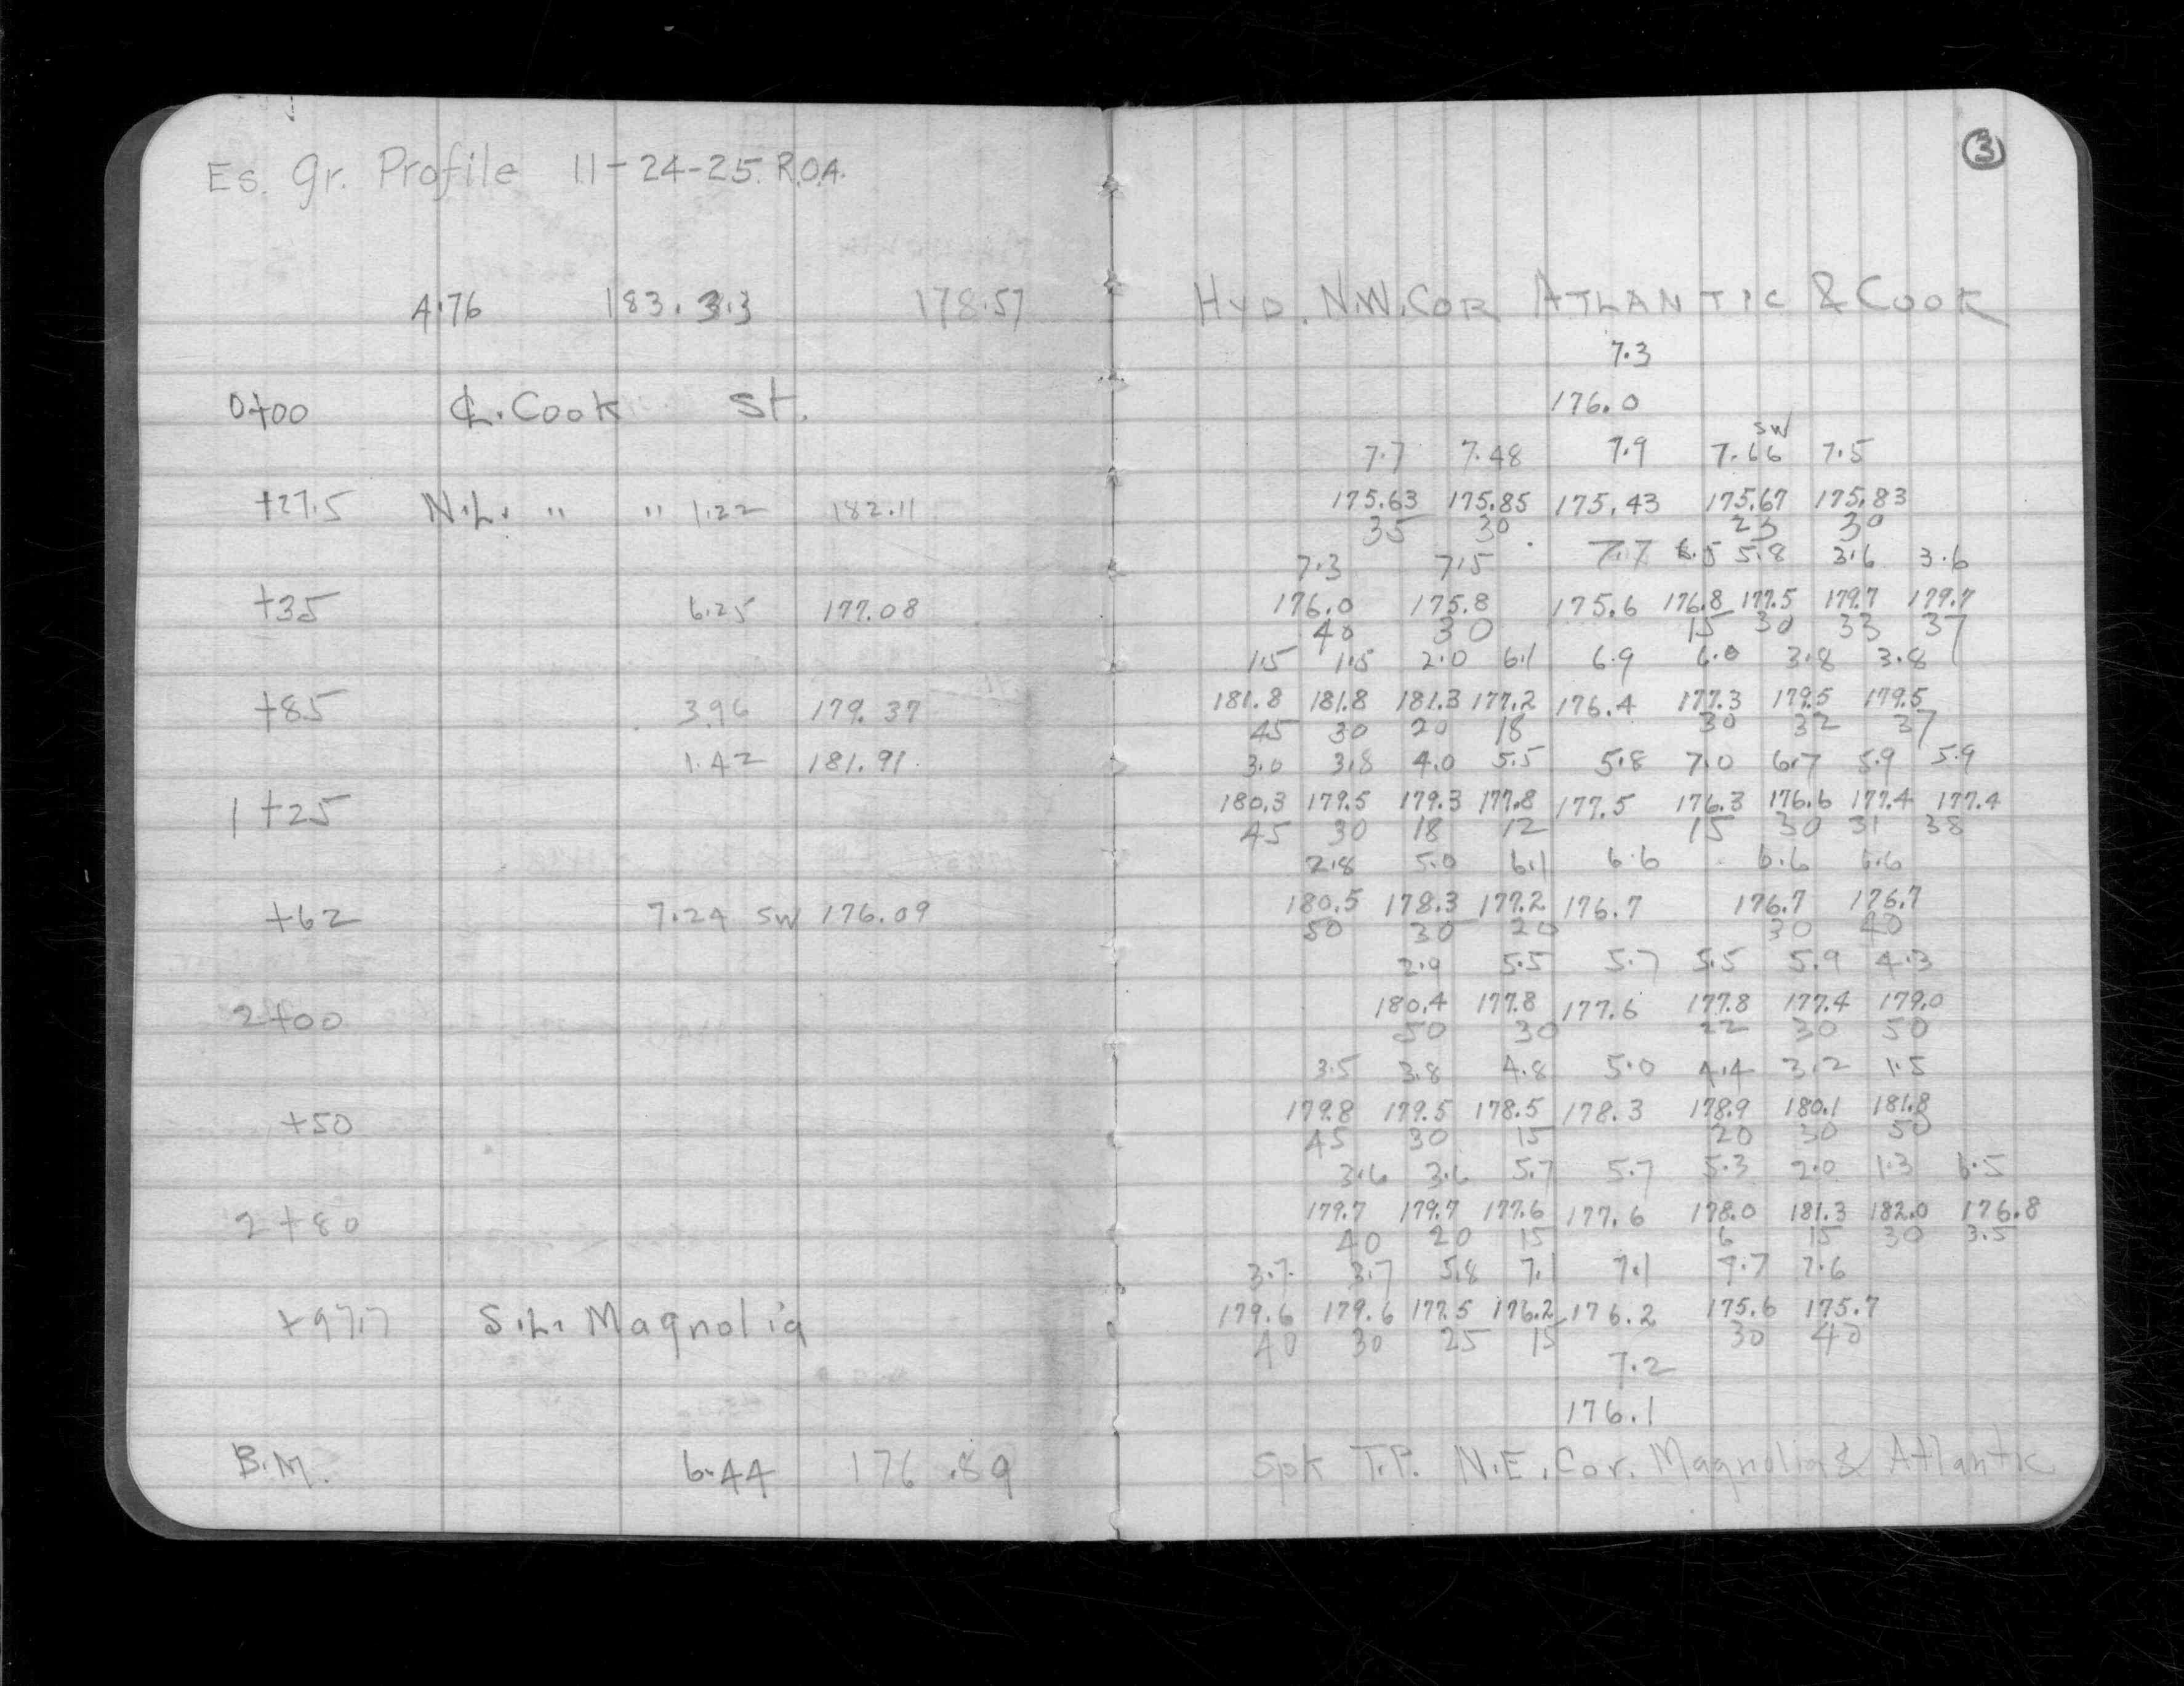 Es. Gr. Profile 11-24-25. R.O.A.
4.76 183.33 178.57
0+00 ℄. Cook St.
+27.5 N.L. " " 1.22 182.11
+35 6.25 177.08
+85 3.96 179.37
1.42 181.91
1+25
+62 7.24 SW 176.09
2+00
+50
2+80
+97.7 S.L. Magnolia
B.M. 6.44 176.89
3
HYD. N.W. COR ATLANTIC & COOK
7.3
176.0
SW
7.7 7.48 7.9 7.66 7.5
175.63 175.85 175.43 175.67 175.83
35 30 23 30
7.3 7.5 7.7 6.5 5.8 3.6 3.6
176.0 175.8 175.6 176.8 177.5 179.7 179.7
40 30 15 30 33 37
1.5 1.5 2.0 6.1 6.9 6.0 3.8 3.8
181.8 181.8 181.3 177.2 176.4 177.3 179.5 179.5
45 30 20 18 30 32 37
3.0 3.8 4.0 5.5 5.8 7.0 6.7 5.9 5.9
180.3 179.5 179.3 177.8 177.5 176.3 176.6 177.4 177.4
45 30 18 12 15 30 31 38
2.8 5.0 6.1 6.6 6.6 6.6
180.5 178.3 177.2 176.7 176.7 176.7
50 30 20 30 40
2.9 5.5 5.7 5.5 5.9 4.3
180.4 177.8 177.6 177.8 177.4 179.0
50 30 22 30 50
3.5 3.8 4.8 5.0 4.4 3.2 1.5
179.8 179.5 178.5 178.3 178.9 180.1 181.8
45 30 15 20 30 50
3.6 3.6 5.7 5.7 5.3 2.0 1.3 6.5
179.7 179.7 177.6 177.6 178.0 181.3 182.0 176.8
40 20 15 6 15 30 3.5
3.7 3.7 5.8 7.1 7.1 7.7 7.6
179.6 179.6 177.5 176.2 176.2 175.6 175.7
40 30 25 15 30 40
7.2
176.1
Spk T.P. N.E. Cor. Magnolia & Atlantic